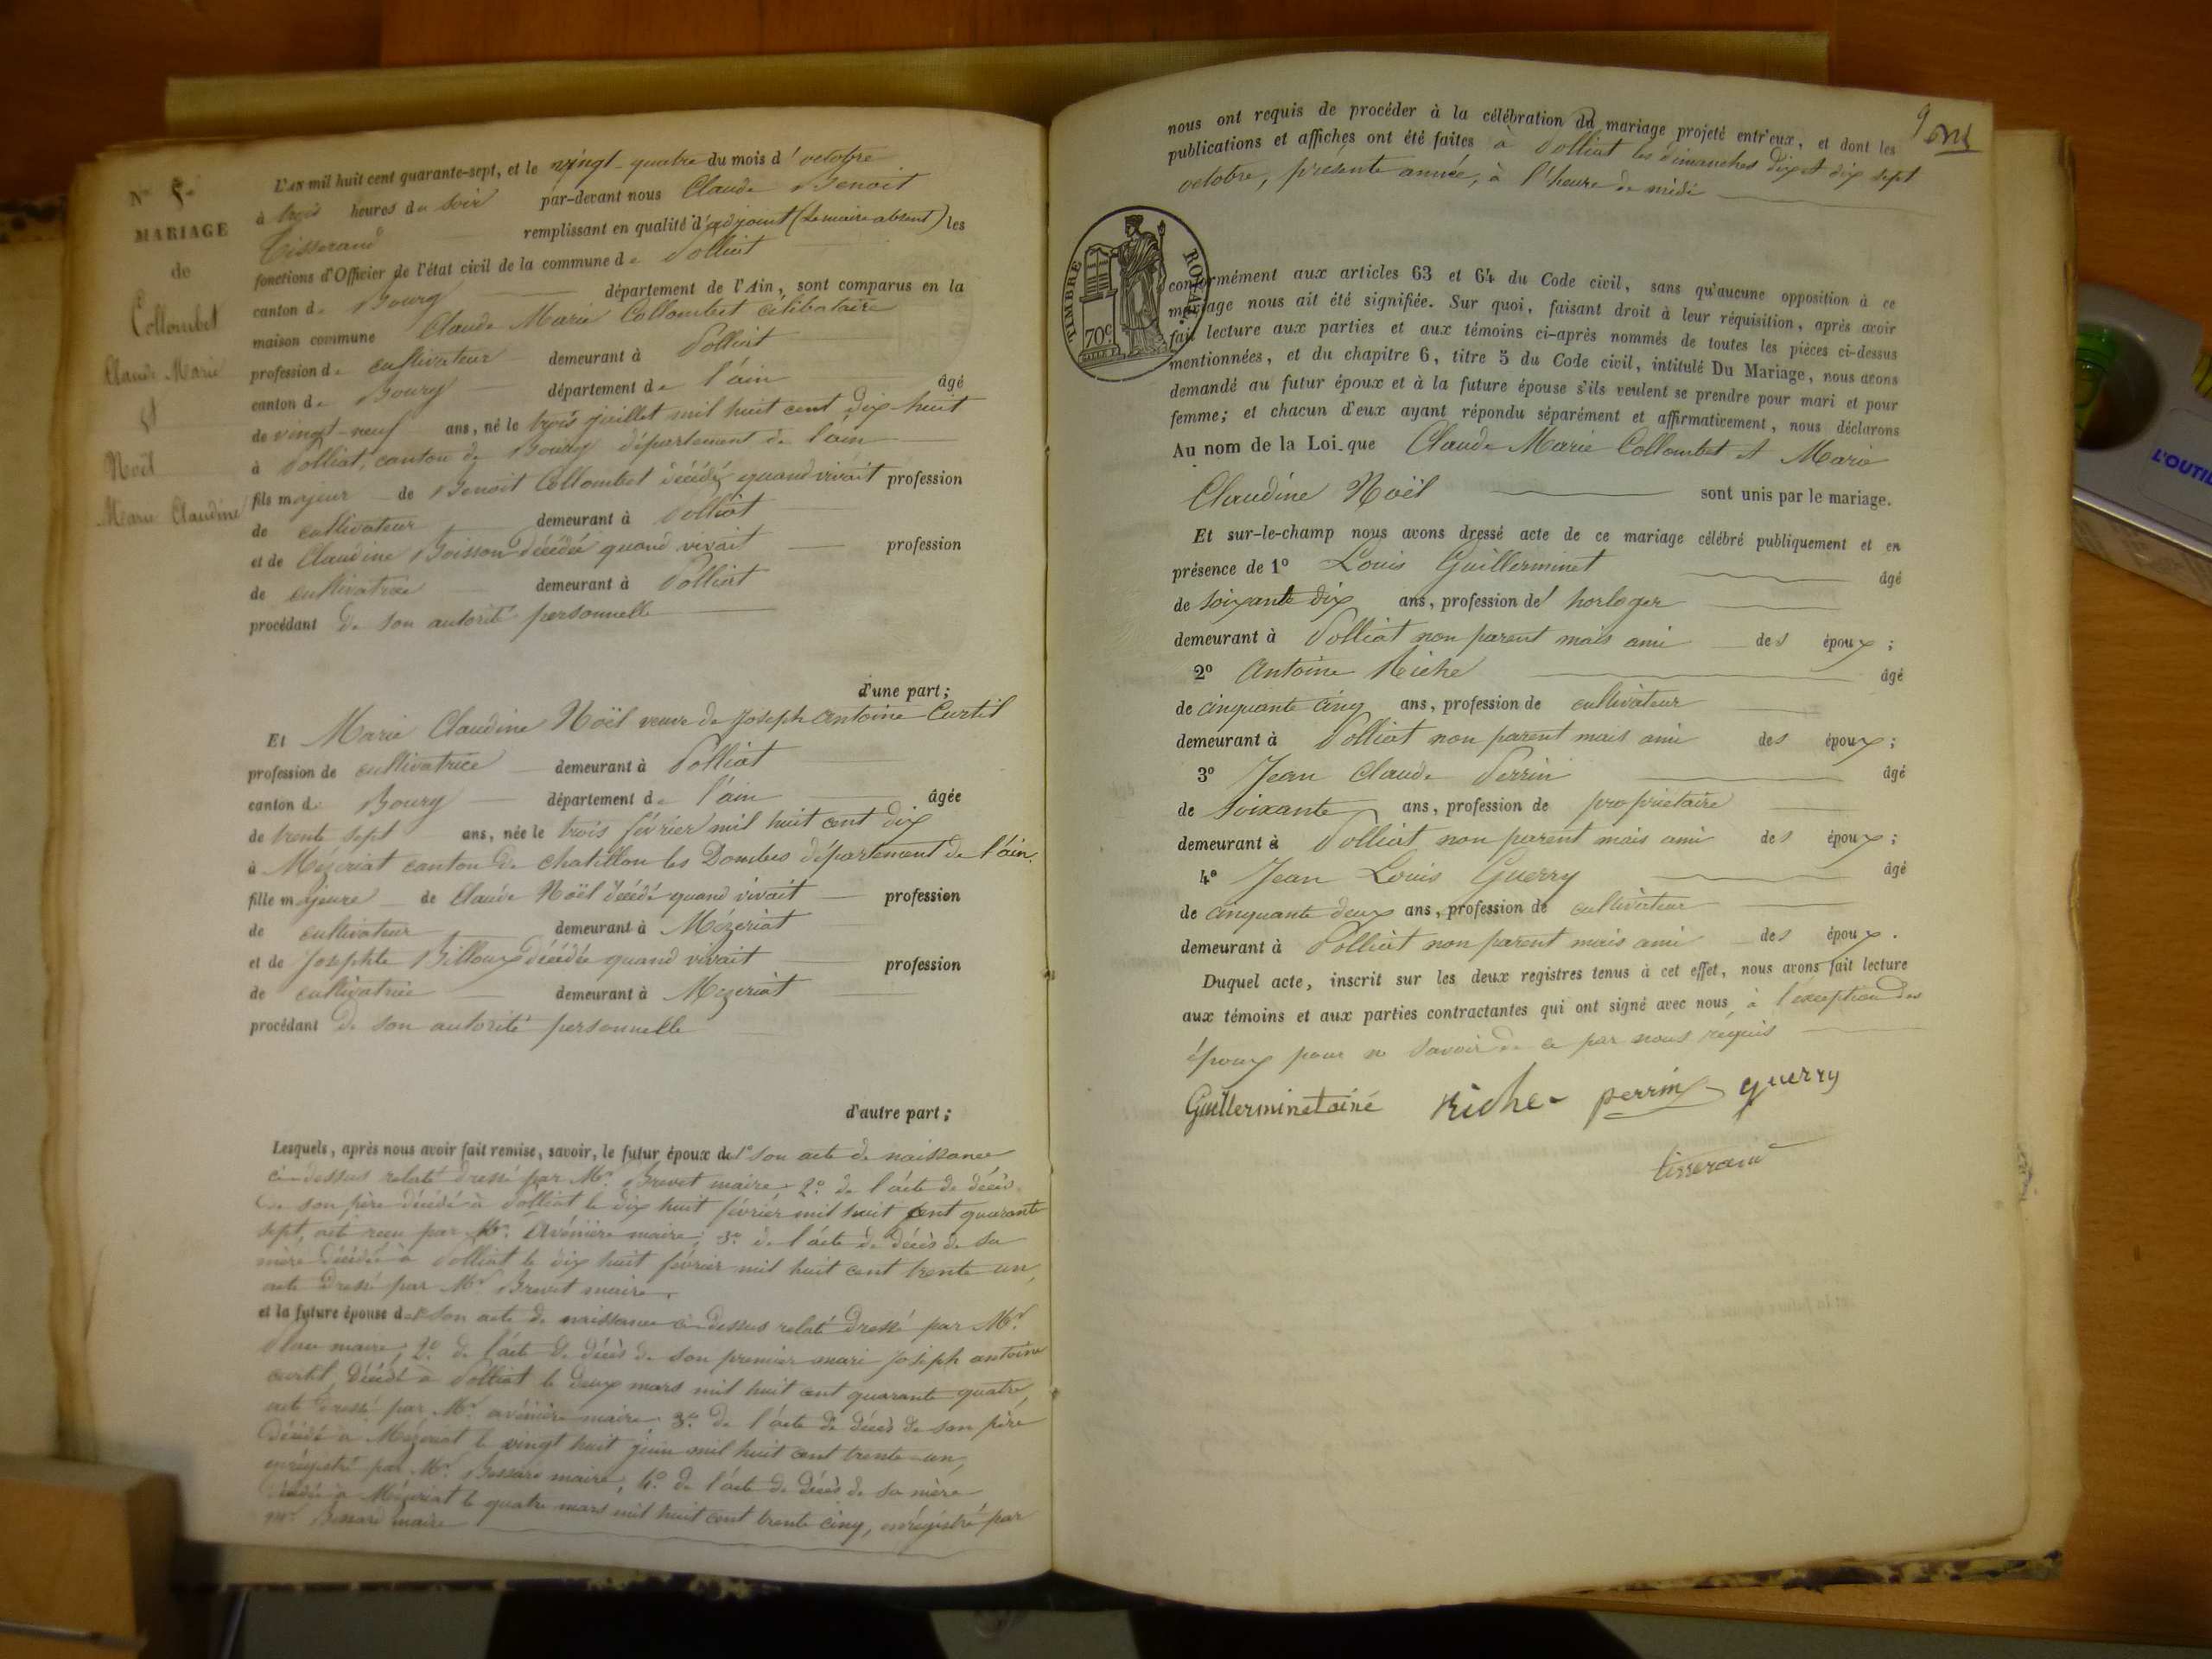 N° 5.
MARIAGE
de
Collombet
Claude Marie
et
Noël
Marie Claudine
L'AN mil huit cent quarante-sept, et le vingt-quatre du mois d'octobre
à trois heures du soir par-devant nous Claude Benoit
Tisserand remplissant en qualité d'adjoint (le maire absent) les
fonctions d'Officier de l'état civil de la commune de Polliat
canton de Bourg département de l'Ain, sont comparus en la
maison commune Claude Marie Collombet célibataire
profession de cultivateur demeurant à Polliat
canton de Bourg département de l'ain âgé
de vingt-neuf ans, né le trois juillet mil huit cent dix huit
à Polliat, canton de Bourg département de l'ain
fils majeur de Benoit Collombet décédé quand vivait profession
de cultivateur demeurant à Polliat
et de Claudine Boisson décédée quand vivait profession
de cultivatrice demeurant à Polliat
procédant de son autorité personnelle
d'une part;
Et Marie Claudine Noël veuve de Joseph Antoine Curtil
profession de cultivatrice demeurant à Polliat
canton de Bourg département de l'ain âgée
de trente sept ans, née le trois février mil huit cent dix
à Mezeriat canton de Chatillon les Dombes département de l'ain.
fille majeure de Claude Noël décédé quand vivait profession
de cultivateur demeurant à Mézeriat
et de Josephte Billoux décédée quand vivait profession
de cultivatrice demeurant à Mezeriat
procédant de son autorité personnelle
d'autre part;
Lesquels, après nous avoir fait remise, savoir, le futur époux de 1° son acte de naissance
ci-dessus relaté dressé par Mr. Brevet maire 2° de l'acte de décès
de son père décédé à Polliat le dix huit février mil huit cent quarante
sept, acte reçu par Mr. Avénière maire; 3° de l'acte de décès de sa
mère décédée à Polliat le dix huit février mil huit cent trente un,
acte dressé par Mr. Brevet maire.
et la future épouse de 1° son acte de naissance ci-dessus relaté dressé par Mr.
maire; 2° de l'acte de décès de son premier mari Joseph antoine
curtil, décédé à Polliat le deux mars mil huit cent quarante quatre,
acte dressé par Mr. avénière maire; 3° de l'acte de décès de son père
décédé à Mézeriat le vingt huit juin mil huit cent trente-un,
enregistré par Mr. maire; 4° de l'acte de décès de sa mère
décédée à Mézeriat le quatre mars mil huit cent trente cinq, enrégistré par
mr. maire
9
nous ont requis de procéder à la célébration du mariage projeté entr'eux, et dont les
publications et affiches ont été faites à Polliat les dimanches dix et dix sept
octobre, présente année, à l'heure de midi
TIMBRE ROYAL
70c
conformément aux articles 63 et 64 du Code civil, sans qu'aucune opposition à ce
mariage nous ait été signifiée. Sur quoi, faisant droit à leur réquisition, après avoir
fait lecture aux parties et aux témoins ci-après nommés de toutes les pièces ci-dessus
mentionnées, et du chapitre 6, titre 5 du Code civil, intitulé Du Mariage, nous avons
demandé au futur époux et à la future épouse s'ils veulent se prendre pour mari et pour
femme; et chacun d'eux ayant répondu séparément et affirmativement, nous déclarons
Au nom de la Loi que Claude Marie Collombet et Marie
Claudine Noël sont unis par le mariage.
Et sur-le-champ nous avons dressé acte de ce mariage célébré publiquement et en
présence de 1° Louis Guillerminet âgé
de soixante dix ans, profession d'horloger
demeurant à Polliat non parent mais ami des époux;
2° Antoine Riche âgé
de cinquante cinq ans, profession de cultivateur
demeurant à Polliat non parent mais ami des époux;
3° Jean Claude Perrin âgé
de soixante ans, profession de propriétaire
demeurant à Polliat non parent mais ami des époux;
4° Jean Louis Guerry âgé
de cinquante deux ans, profession de cultivateur
demeurant à Polliat non parent mais ami des époux.
Duquel acte, inscrit sur les deux registres tenus à cet effet, nous avons fait lecture
aux témoins et aux parties contractantes qui ont signé avec nous, à l'exception des
époux pour ne savoir de ce par nous requis
Guillerminet ainé Riche perrin guerry
tisserand
L'OUTIL